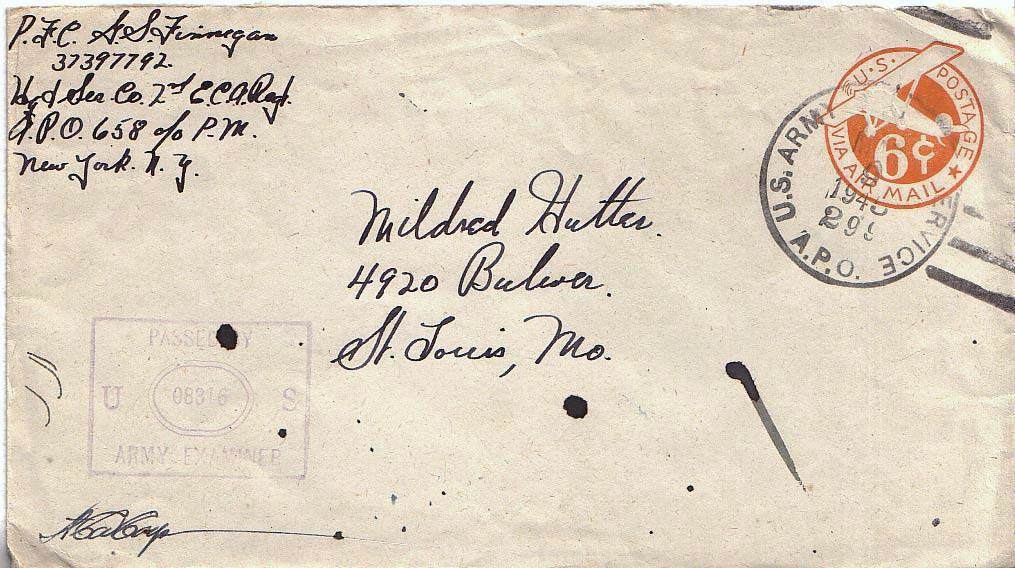 P.F.C. S.S. Finnegan
37397792
Hq & Ser. Co. 2nd E.C.A. Regt.
A.P.O. 658 c/o P.M.
New York. N. Y.
U.S. POSTAGE
6¢
VIA AIR MAIL
U.S. ARMY SERVICE
1943
299
A.P.O.
Mildred Hutter.
4920 Bulwer.
St. Louis, Mo.
PASSED BY
U 08316 S
ARMY EXAMINER